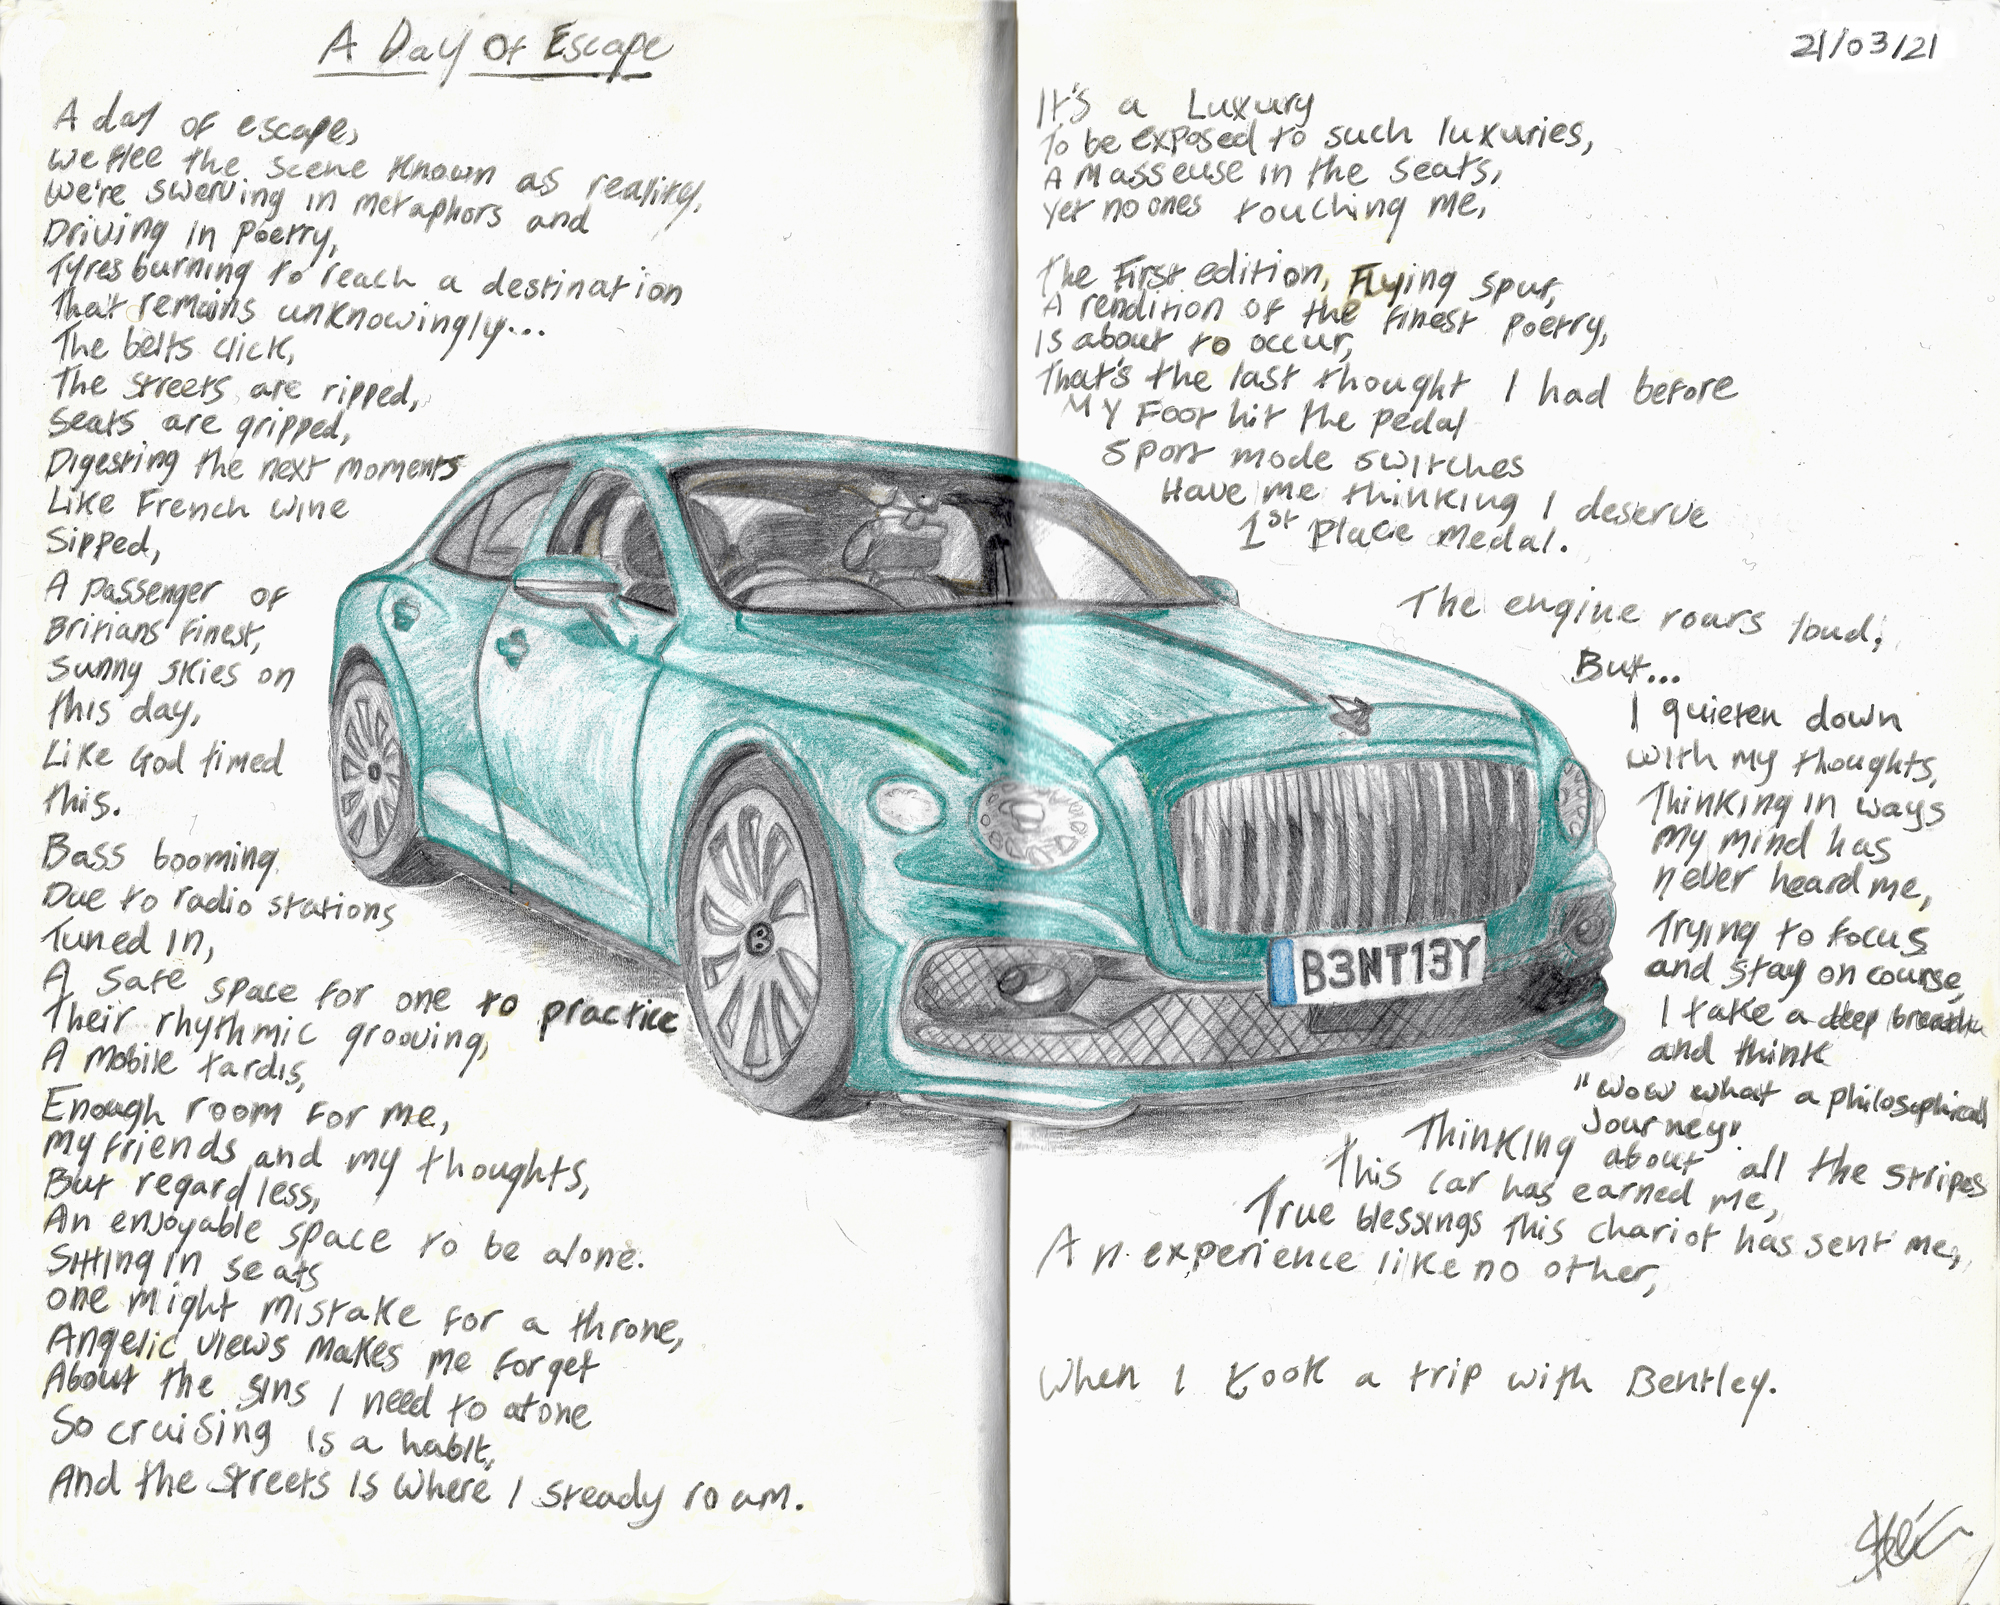 A Day Of Escape
A day of escape,
We flee the scene known as reality,
We're swerving in metaphors and
Driving in poetry,
Tyres burning to reach a destination
That remains unknowingly...
The belts click,
The streets are ripped,
Seats are gripped,
Digesting the next moments
Like French wine
Sipped,
A passenger of
Britians finest,
Sunny skies on
this day,
Like God timed
this.
Bass booming
Due to radio stations
Tuned in,
A safe space for one to practice
Their rhythmic grooving,
A mobile tardis,
Enough room for me,
My friends and my thoughts,
But regardless,
An enjoyable space to be alone.
Sitting in seats
one might mistake for a throne,
Angelic views makes me forget
About the sins I need to atone
So cruising is a habit,
And the streets is where I steady roam.
21/03/21
It's a Luxury
To be exposed to such luxuries,
A masseuse in the seats,
Yet no ones touching me,
The First edition, Flying Spur,
A rendition of the finest poetry,
Is about to occur,
That's the last thought I had before
My foot hit the pedal
Sport mode switches
Have me thinking I deserve
1st place medal.
The engine roars loud,
But...
I quieten down
with my thoughts,
Thinking in ways
my mind has
never heard me,
Trying to focus
and stay on course,
I take a deep breath
and think
"Wow what a philosophical
Journey"
Thinking about all the stripes
This car has earned me,
True blessings this chariot has sent me,
An experience like no other,
When I took a trip with Bentley.
B3NT13Y
B